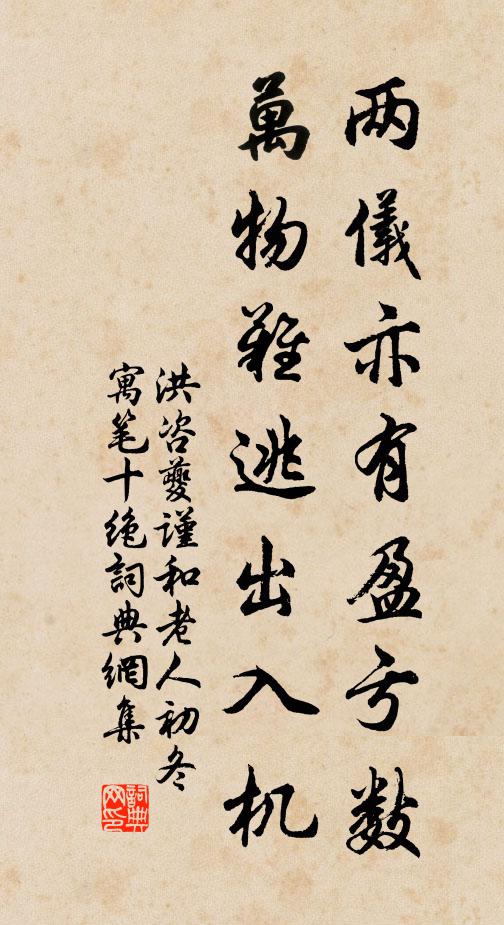 两儀亦有盈亏数
萬物難逃出入机
洪咨夔謹和老人初冬
寓笔十绝詞典網集
詞典网印